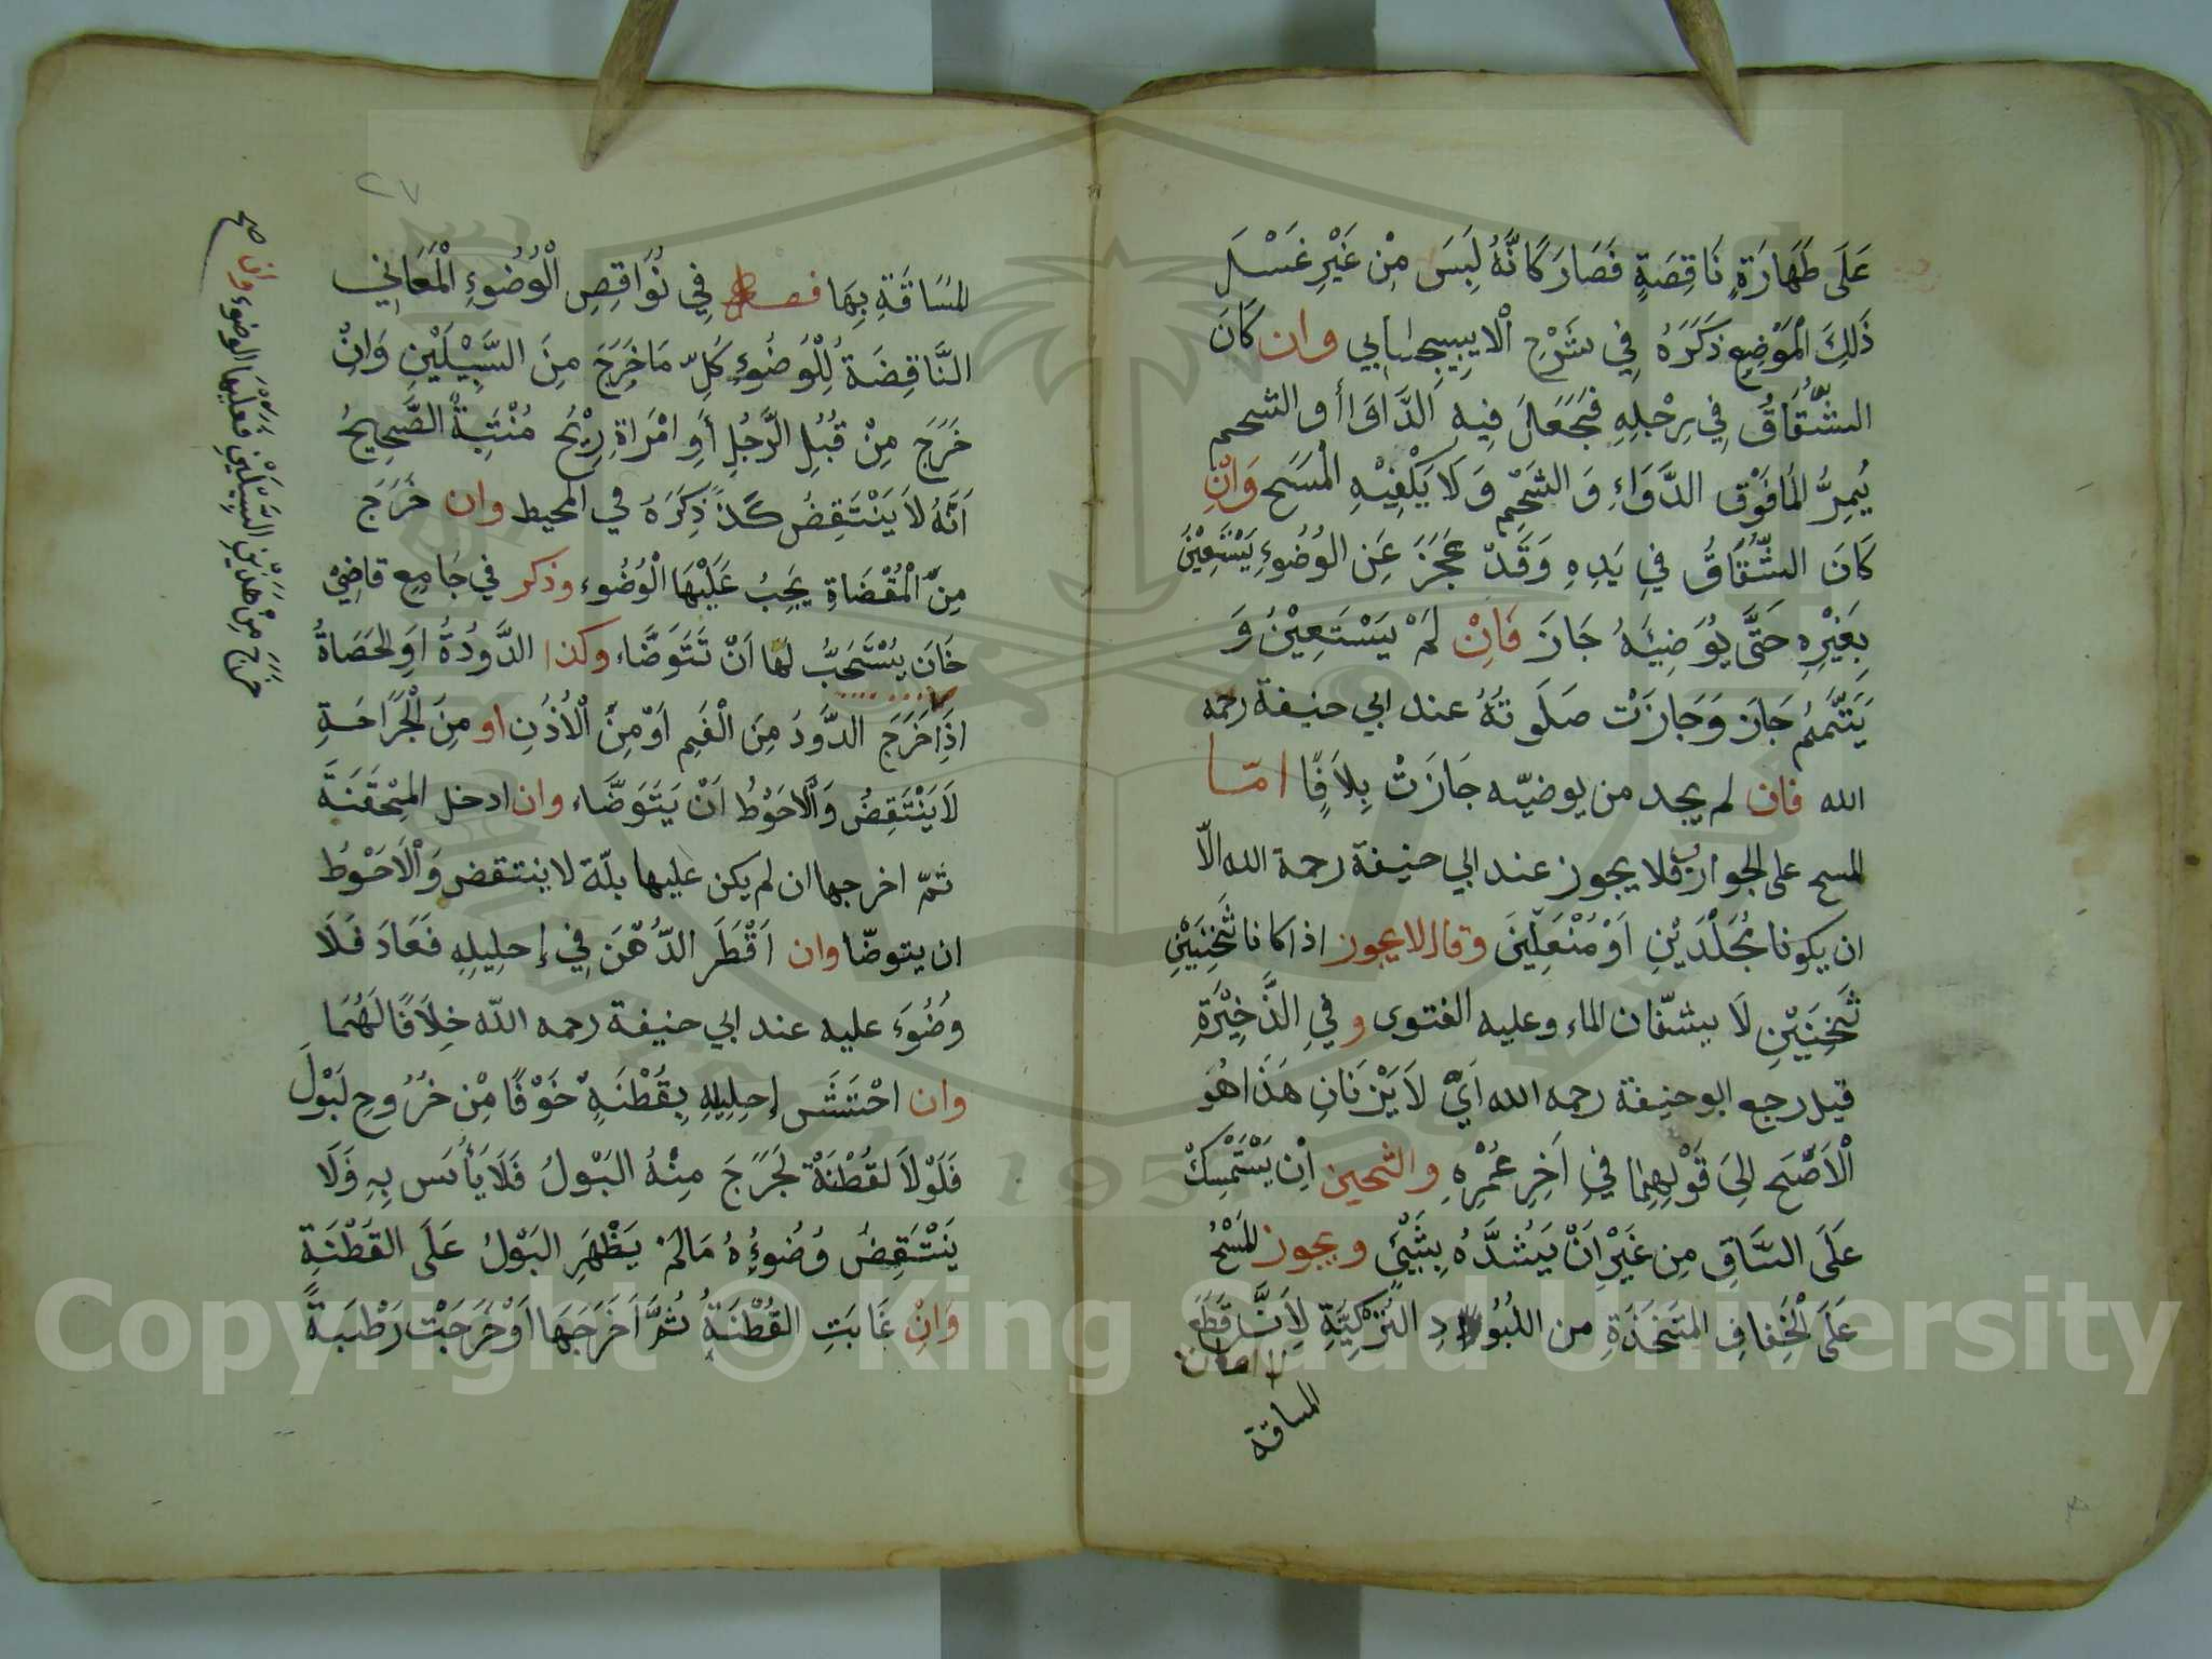 عَلَى طَهَارَةٍ نَاقِصَةٍ فَصَارَ كَانَّهُ لَبِسَ مِنْ غَيْرِ غَسْلِ
ذَلِكَ الْمَوْضِعِ ذَكَرَهُ فِي شَرْحِ الْاِيبِيجابي وان كَانَ
الشُّقَاقُ فِي رِجْلِهِ فَجَعَلَ فِيهِ الدَّاوَا أو الشحم
يُمِرُّ الْمَا فَوْقَ الدَّوَاءِ وَ الشَّحْمِ وَ لَا يَكْفِيْهِ الْمَسَح وَاِنْ
كَانَ الشُّقَاقُ فِي يَدِهِ وَقَدْ عَجَزَ عَنِ الوُضُوءِ يَسْتَعِيْنُ
بِغَيْرِهِ حَتَّى يُوَضِيَهُ جَازَ فَاِنْ لَمْ يَسْتَعِيْنُ وَ
يَتَيَمَّمُ جَازَ وَجَازَتْ صَلَوتُهُ عند ابي حنيفة رحمه
الله فان لم يجد من يوضيّه جَازَتْ بِلَافٍا امّا
المسح على الجوارب فلا يجوز عند ابي حنيفة رحمة الله الّا
ان يكونا مُجَلَّدَيْنِ اَوْ مُنْعَلَيْنَ وقالا يجوز اذا كانا ثَخِيْنَيْنِ
ثَخِيْنَيْنِ لَا يشفّان الماء وعليه الفتوى و فِي الذَّخِيْرَةِ
قيل رجع ابو حنيفة رحمه الله اَيْ لَا يَنْزَفَانِ هَذَا هُوَ
الْاَصَح اِلىَ قَوْلِهِمَا فِي اَخِرِ عُمْرِهِ والثخين اِنْ يَسْتَمْسِكْ
عَلَى السَّاقِ مِن غَيْرِ اَنْ يَشُدَّهُ بِشَيْئٍ ويجوز المَسْحُ
عَلَى الْخِفَافِ المتَخَذَةِ من اللبُودِ التُرْكِيَّةِ لِاَنَّ قَطَعَ
المساقة
٢٧
المسَاقَةِ بِهَا فصل فِي نَوَاقِصِ الْوُضُوءِ الْمَعَانِي
النَّاقِضَةُ لِلْوُضُوءِ كُلّ مَا خَرَجَ مِنَ السَّبِيْلَيْنِ وَاِنْ
خَرَجَ مِنْ قُبُلِ الرَّجُلِ أَوِ امْرَاةِ رِيْحُ مُنْتِنَةٌ الصَّحِيحُ
اَنَّهُ لَا يَنْتَقِضُ كَذَ ذِكَرَهُ في المحيط وان خَرَجَ
مِنَ الْمُقْضَاةِ يَجِبُ عَلَيْهَا الْوُضُوء وذكر في جَامِعِ قاضِيْ
خَان يُسْتَحَبُّ لَهَا اَنْ تَتَوَضَّاء وكذا الدَّوُدةُ اَوِ الحَصَاةُ
اذَا خَرَجَ الدَّودُ مِنَ الْفَمِ اَوْ مِنَ الْأُذُنِ او مِنَ الْجَرَاحَةِ
لَا يَنْتَقِضُ وَالْاَحْوَطُ اَنْ يَتَوَضَّاء وان ادخل المِحْقَنَةَ
ثمّ اخرجها ان لم يكن عليها بلّة لا ينتقض وَالْاَحْوَطُ
ان يتوضّا وان اَقْطَرَ الدُّهْنَ فِي إحلِيلِهِ فَعَادَ فَلَا
وُضُوَء عليه عند ابي حنيفة رحمه اللّه خِلَافًا لَهُمَا
وان احْتَشَى إحلِيلِهِ بِقُطْنَهٍ خَوْفًا مِنْ خُرُوجِ لَبَوْلَ
فَلَوْلَا لقُطْنَةَ لخَرَجَ مِنْهُ البَوْلُ فَلَا يَأْسَ بِهِ وَلَا
يَنْتَقِضُ وُضُوءُهُ مَالَمْ يَظْهَرِ البَوْلُ عَلَى القُطْنَةِ
وَاِنْ غَابَتِ القُطْنَةُ ثُمَّ اَخْرَجَهَا اَوْ خَرَجَتْ رَطْبَةً
خَرَجَ مِنْ هَذَيْنِ السَّبِيْلَيْنِ فَعَلَيْهَا الوضوء وان صح
Copyright © King Saud University
1957